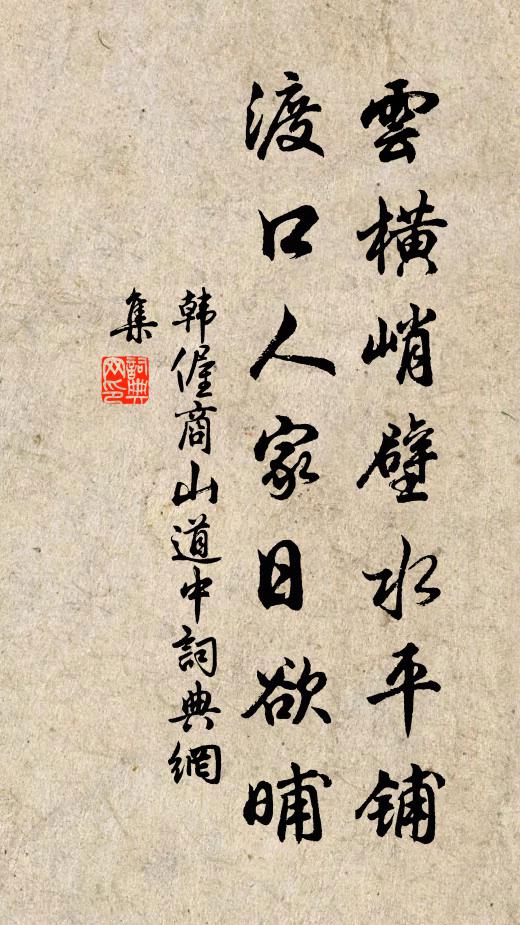 雲橫峭壁水平铺
渡口人家日欲晡
韩偓商山道中詞典網
集
詞典網印